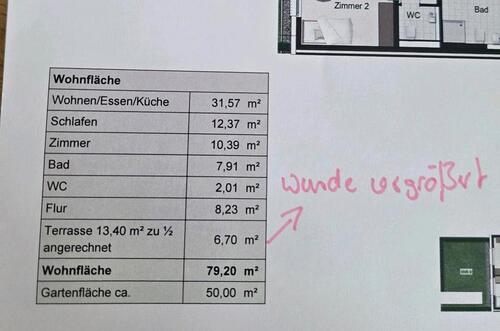 Zimmer 2
WC
Bad
Wohnfläche
Wohnen/Essen/Küche 31,57 m²
Schlafen 12,37 m²
Zimmer 10,39 m²
Bad 7,91 m²
WC 2,01 m²
Flur 8,23 m²
Terrasse 13,40 m² zu ½
angerechnet 6,70 m²
wurde vergrößert
Wohnfläche 79,20 m²
Gartenfläche ca. 50,00 m²